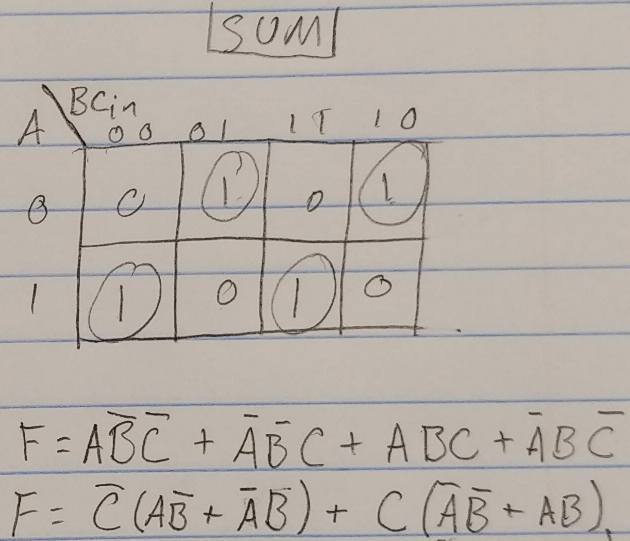 SUM
A \ BCin
00 01 11 10
0 0 1 0 1
1 1 0 1 0
F = AB̅C̅ + A̅B̅C + ABC + A̅BC̅
F = C̅(AB̅ + A̅B̅) + C(A̅B̅ + AB)